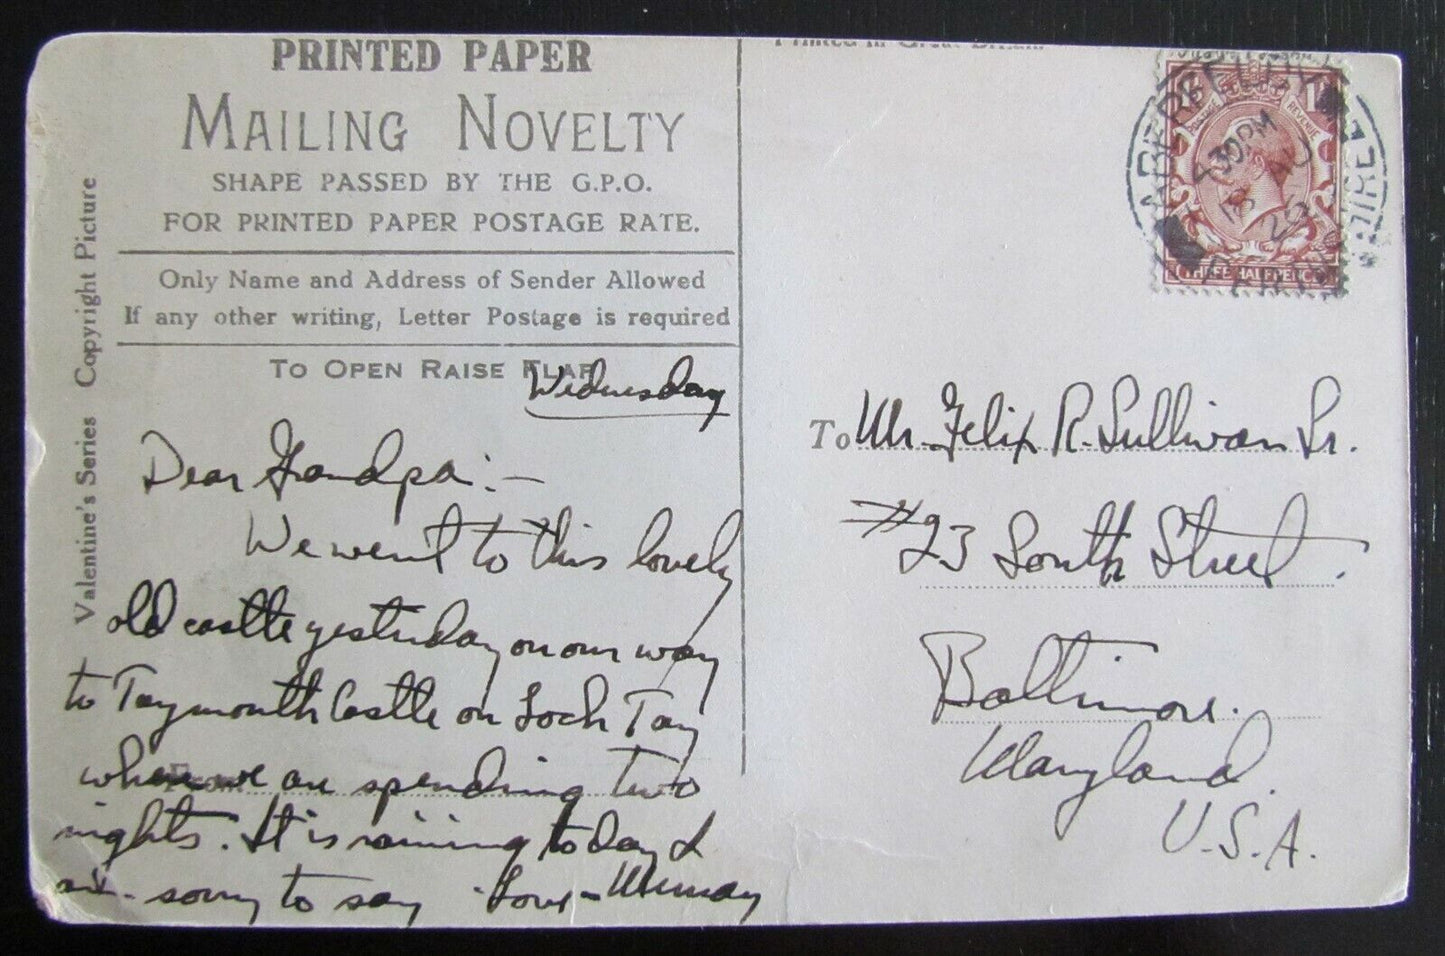 PRINTED PAPER
MAILING NOVELTY
SHAPE PASSED BY THE G.P.O.
FOR PRINTED PAPER POSTAGE RATE.
Only Name and Address of Sender Allowed
If any other writing, Letter Postage is required
TO OPEN RAISE FLAP
Valentine's Series Copyright Picture
Wednesday
Dear Grandpa:-
We went to this lovely
old castle yesterday on our way
to Taymouth Castle on Loch Tay
where we are spending two
nights. It is raining today I
am sorry to say. Love - Murray
Printed in Great Britain
ABERFELDY
PERTHSHIRE
30PM
18 AU
POSTAGE REVENUE
THREE HALFPENCE
To Mr. Felix R. Sullivan Sr.
#23 South Street.
Baltimore.
Maryland.
U.S.A.